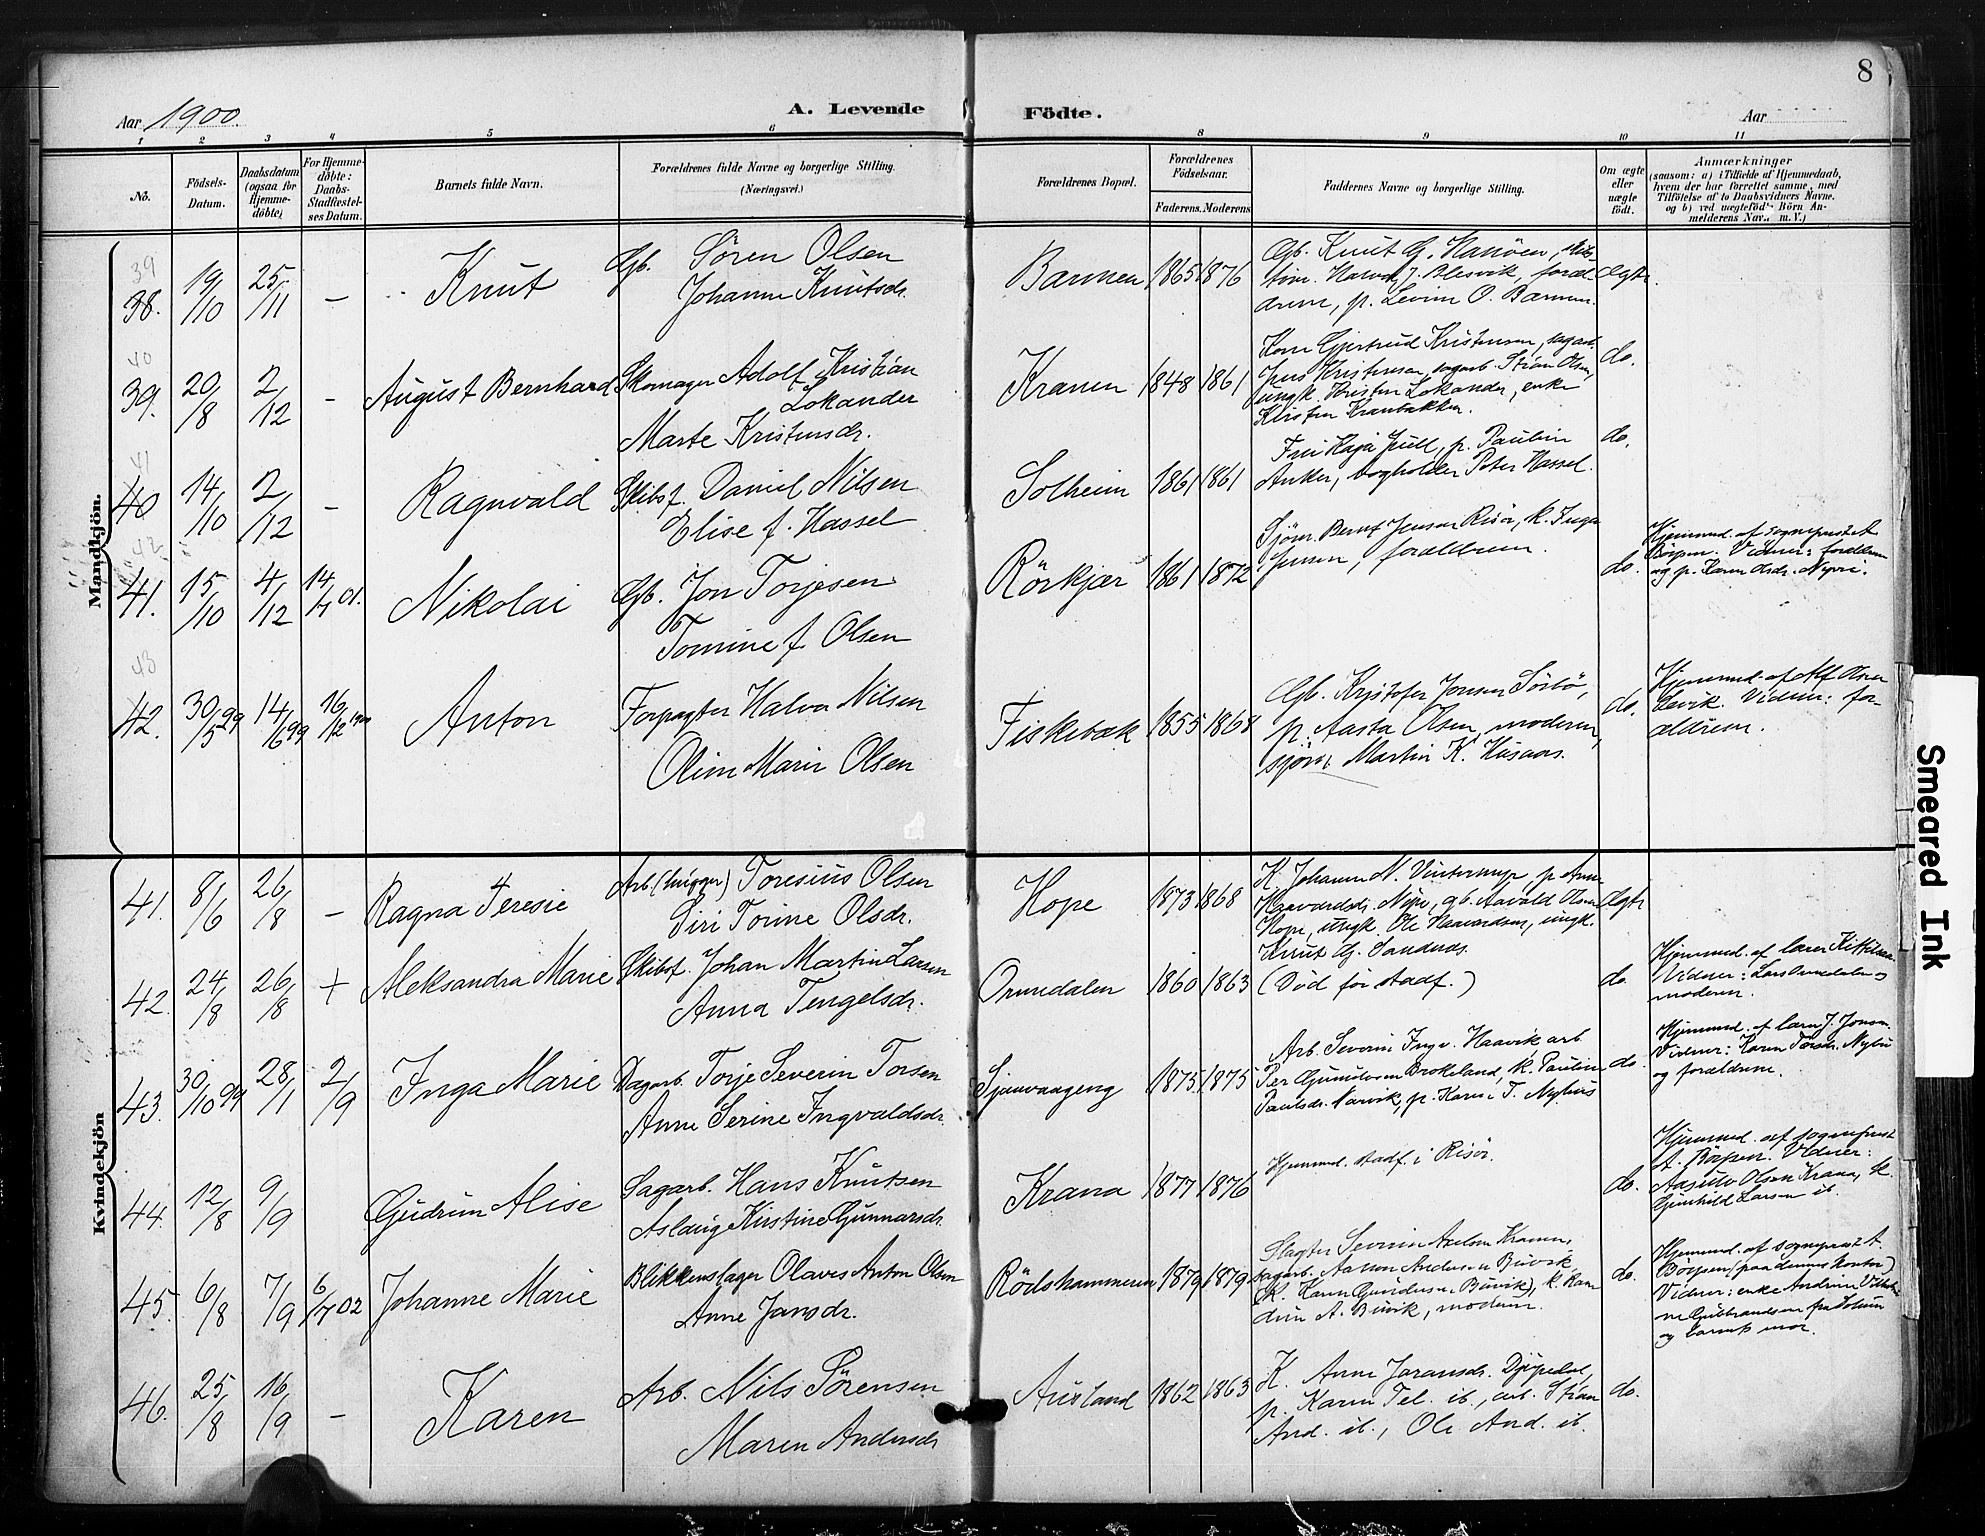 8
Aar 1900.
A. Levende
Födte.
Aar
1 2 3 4 5 6 8 9 10 11
No.
Födsels-Datum.
Daabsdatum (ogsaa for Hjemme-döbte)
For Hjemme-döbte: Daabs-Stadfæstel-ses Datum.
Barnets fulde Navn.
Forældrenes fulde Navne og borgerlige Stilling.
(Næringsvei.)
Forældrenes Bopæl.
Forældrenes Födselsaar.
Faderens. Moderens
Faddernes Navne og borgerlige Stilling.
Om ægte eller uægte födt.
Anmærkninger
(saasom: a) i Tilfælde af Hjemmedaab,
hvem der har forrettet samme, med
Tilföielse af to Daabsvidners Navne.
og b) ved uægteföd. Börn An-
melderens Nav., m. V.)
Mandkjön.
39
38. 19/10 25/11 – Knut Gb. Søren Olsen
Johanne Knutsdr.
Barmen 1865 1876
Gb. Knut G.
Ægte.
drene, p. Levine O. Barmen.
40
39. 20/8 2/12 – August Bernhard Skomager Adolf Kristian
Lokander
Marte Kristensdr.
Kranen 1848 1861
Kone Gjertrud Kristensen, sagarb.
Jens Kristensen, sagarb. Stian Olsen,
ungk. Kristen Lokander, enke
Kirsten Kranbakken.
do.
41
40 14/10 2/12 – Ragnvald Skibsf. Daniel Nilsen
Elise f. Hassel
Solheim 1861 1861
Fru Kaja Juell, p. Pauline
Anker, bogholder Peter Hassel.
do.
42
41. 15/10 4/12 14/1 01. Nikolai Gb. Jon Torjesen
Tomine f. Olsen
Rörkjær 1861 1872
Sjöm. Bernt Jensen Risör, k. Inga
Jensen, forældrene.
do.
Hjemmed. af sognepræst A.
Börpen. Vidner: forældrene
og p. Karen Olsdr.
43
42. 30/5 99 14/6 99 16/12 1900 Anton Forpagter Halvor Nilsen
Oline Marie Olsen
Fiskebæk 1855 1868
Gb. Kristofer Jensen Sörbö,
p. Aasta Olsen, moderen,
sjöm. Martin K. Husaas.
do.
Hjemmed. af Alf Olsen
Vidner: for-
ældrene.
Kvindekjön
41. 8/6 26/8 – Ragna Teresie Arb. Toresius Olsen
Siri Torine Olsdr.
Hope 1873 1868
K. Johanne N. p. Anne
Haavardsdr. gb. Aavald Olsen
Hope, ungk. Ole Haavardsen, ungk.
Knut G. Sandnes.
Ægte
42. 24/8 26/8 + Aleksandra Marie Skibsf. Johan Martin Larsen
Anna Tengelsdr.
Ormdalen 1860 1863
(Död för stadf.)
do.
Hjemmed. af lærer Kittilsen
Vidner: Lars Ormdalen og
moderen.
43. 30/10 99 28/1 2/9 Inga Marie Dagarb. Torje Severin Torsen
Anne Serine Ingvaldsdr.
1875 1875
Arb. Severin Ingv. Haavik arb.
Per Gundersen Brokeland, k. Pauline
Paulsdr. Narvik, p. Karen T. Nyhus
do.
Hjemmed. af lærer J. Jonsen.
Vidner: Karen Torsdr. Nyhus
og forældrene.
44. 12/8 9/9 Gudrun Alise Sagarb. Hans Knutsen
Aslaug Kirstine Gunnarsdr.
Krana 1877 1876
Hjemmed. stadf. i Risör.
do.
Hjemmed. af sognepræst
A. Börpen. Vidner:
Olsen Krana, k.
Gunhild Larsen ib.
45. 6/8 7/9 6/7 02 Johanne Marie Blikkenslager Olaves Anton Olsen
Anne Jansdr.
Rödshammeren 1879 1879
Slagter Severin Axelsen Kranen,
sagarb. Aanon Andersen Buvik
(k. Karen Gundersen Buvik),
A. Buvik, moderen.
do.
Hjemmed. af sognepræst A.
Börpen (paa dennes kontor)
Vidner: enke Andrine
Gulbrandsen fra Solum
og barnets mor.
46. 25/8 16/9 – Karen Arb. Nils Sörensen
Maren Andersdr
Ausland 1862 1863
K. Anne Joransdr. Djupedal,
p. Karen Tel. ib., arb. Stian
And. ib., Ole And. ib.
do.
Smeared Ink